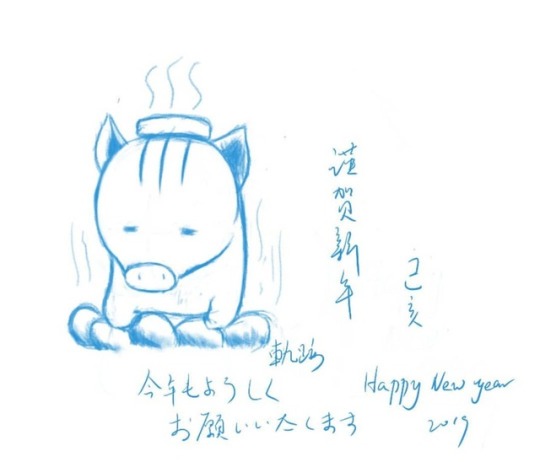 謹賀新年
己亥
今年もよろしく
お願いいたします
Happy New year
2019